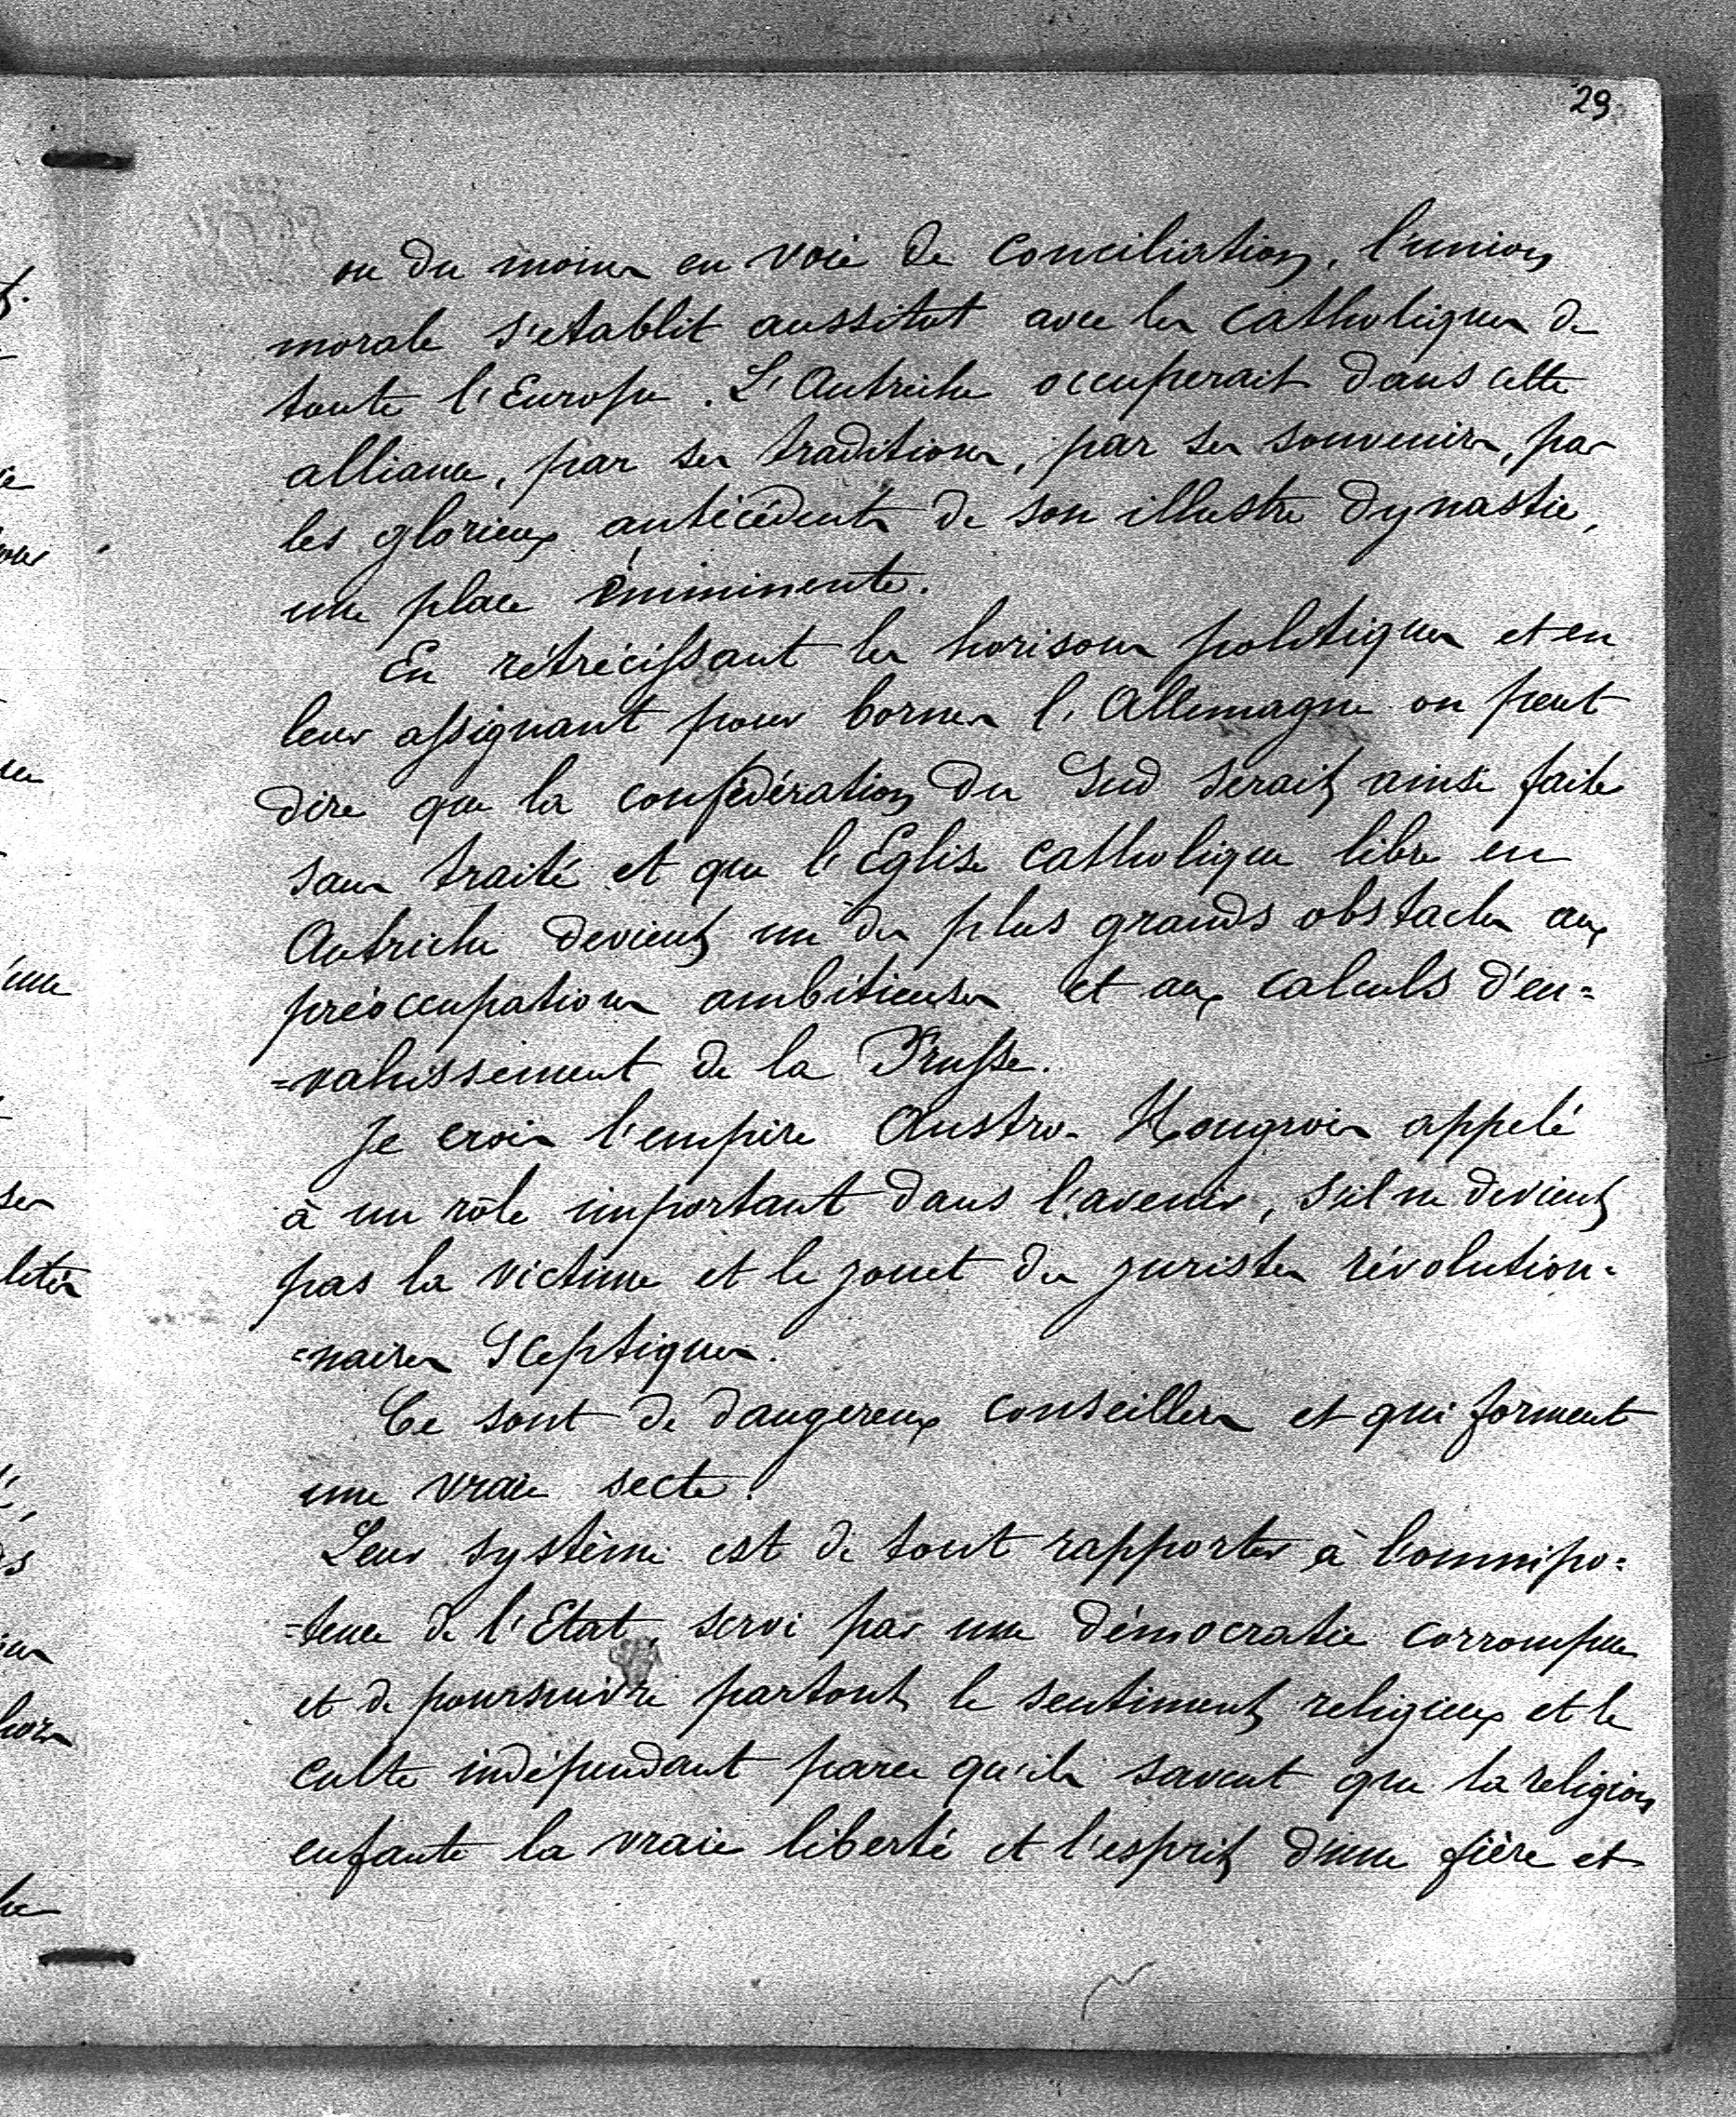 29
ou du moins en voie de conciliation, l'union
morale s'etablit aussitot avec les catholiques de
toute l'Europe. L'Autriche occuperait dans cette
alliance, par ses traditions, par ses souvenirs, par
les glorieux antécédents de son illustre dynastie,
une place éminimente.
En rétrécissant les horisons politiques et en
leur assignant pour bornes l'Allemagne on peut
dire que la confédération du Sud serait ainsi faite
sans traité et que l'Eglise catholique libre en
Autriche devient un des plus grands obstacles aux
préoccupations ambitieuses et aux calculs d'en=
=vahissement de la Prusse.
Je crois l'empire Austro-Hongrois appelé
à un rôle important dans l'avenir, s'il ne devient
pas la victime et le jouet des juristes révolution=
=naires Sceptiques.
Ce sont de dangereux conseillers et qui forment
une vraie secte.
Leur système est de tout rapporter à l'omnipo=
=tence de l'Etat, servi par une démocratie corrompue
et de poursuivre partout le sentiment religieux et le
culte indépendant parce qu'ils savent que la religion
enfante la vraie liberté et l'esprit d'une fière et